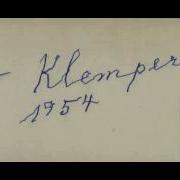 - Klemper
1954